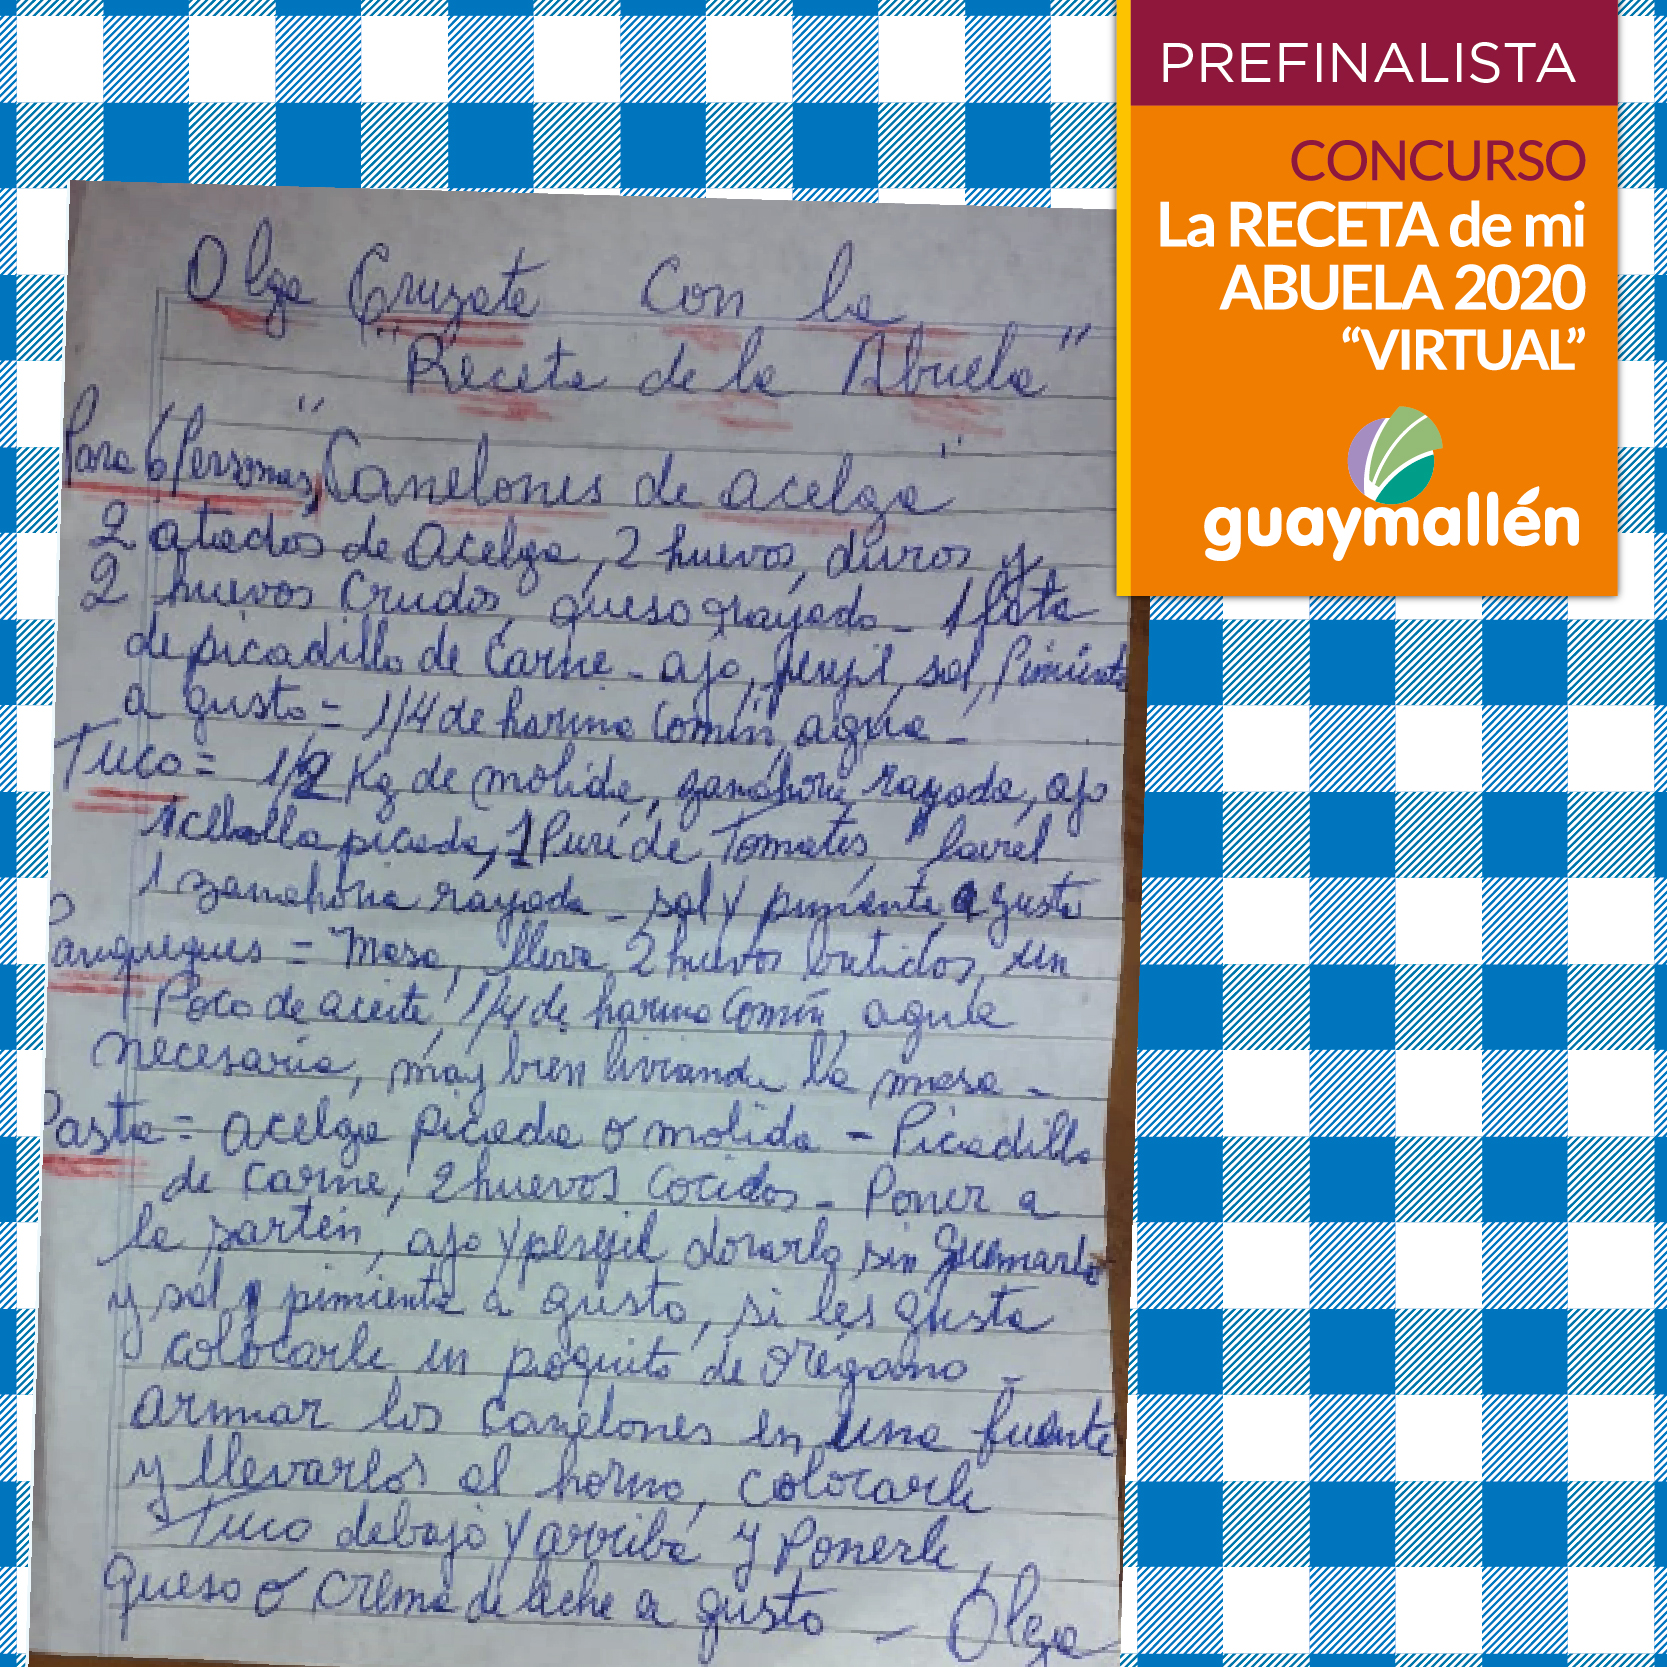 PREFINALISTA
CONCURSO
La RECETA de mi
ABUELA 2020
“VIRTUAL”
guaymallén
Olga Cruzate Con la
"Receta de la Abuela"
Para 6 Personas, "Canelones de acelga"
2 atados de Acelga, 2 huevos, duros y
2 huevos Crudos, queso rayado - 1 lata
de picadillo de Carne - ajo, perejil, sal, Pimienta
a gusto = 1/4 de harina Común, agua -
Tuco = 1/2 Kg de molida, zanahoria rayada, ajo
1 cebolla picada, 1 Puré de Tomates, laurel
1 zanahoria rayada - sal y pimienta a gusto
Panqueques = Masa, lleva, 2 huevos batidos, un
Poco de aceite, 1/4 de harina Común, agua
necesaria, muy bien liviana la masa -
Pasta = acelga picada o molida - Picadillo
de Carne, 2 huevos Cocidos - Poner a
la sartén, ajo y perejil dorarlo sin quemarlo
y sal y pimienta a gusto, si les gusta
colocarle un poquito de orégano -
armar los canelones en una fuente
y llevarlos al horno, colocarle
Tuco debajo y arriba y Ponerle,
queso o crema de leche a gusto - Olga